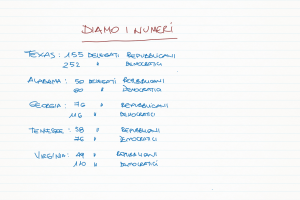 DIAMO I NUMERI
TEXAS: 155 DELEGATI REPUBBLICANI
252 " DEMOCRATICI
ALABAMA: 50 DELEGATI REPUBBLICANI
60 " DEMOCRATICI
GEORGIA: 76 " REPUBBLICANI
116 " DEMOCRATICI
TENNESSEE: 58 " REPUBBLICANI
76 " DEMOCRATICI
VIRGINIA: 49 " REPUBBLICANI
110 " DEMOCRATICI